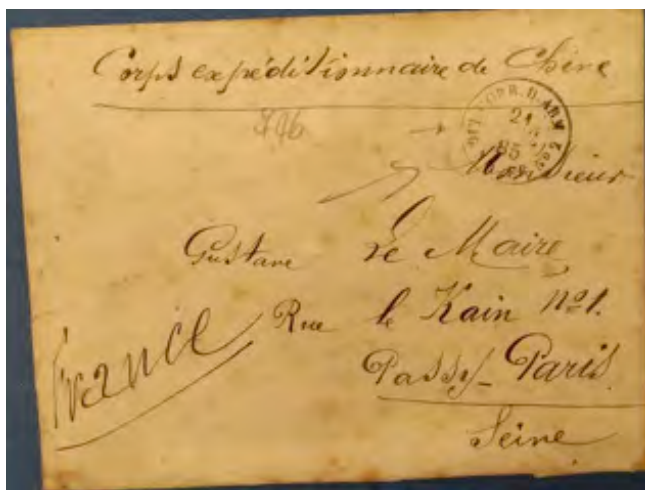 Corps expéditionnaire de Chine
CORR. D. ARM
21
85
No 2
Monsieur
Gustave Le Maire
Rue le Kain No 1.
Passy - Paris
Seine
France